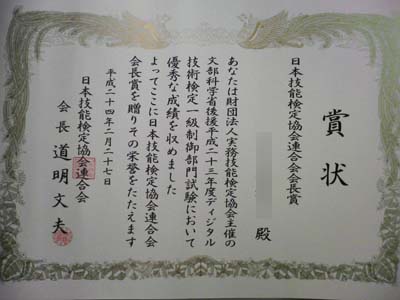 賞状
日本技能検定協会連合会会長賞
殿
あなたは財団法人実務技能検定協会主催の
文部科学省後援平成二十三年度ディジタル
技術検定一級制御部門試験において
優秀な成績を収めました
よってここに日本技能検定協会連合会
会長賞を贈りその栄誉をたたえます
平成二十四年二月二十七日
日本技能検定協会連合会
会長 道明文夫